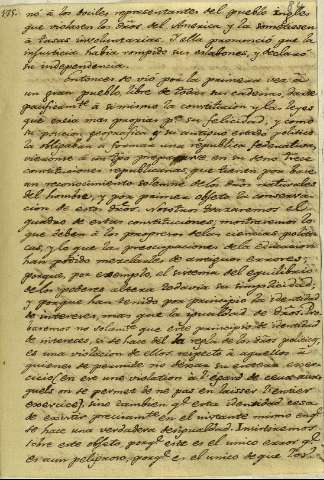 no á los bailes, representantes del pueblo á
que violasen los dros del America y la sometiesen
á tasas involuntarias. Y ella pronunció que la
injusticia habia rompido sus eslabones, y declaró
su independencia.
Entonces se vio por la primera vez á
un gran pueblo, libre de todas sus cadenas, darse
pacificamte. á si mismo la constitucion y las leyes
que creia mas propias pa. su felicidad; y como
su posicion geografica y su antiguo estado politico
le obligaban á formar una república federativa,
vieronse á un tpo prepararse en su seno trece
constituciones republicanas que tienen por base
un reconocimiento solemne de los dros naturales
del hombre, y por primer objeto la conserva-
cion de estos dros. Nosotros trazaremos el
quadro de estas constituciones, mostraremos lo
que deben á los progresos de las ciencias politi-
cas, y lo que las preocupaciones de la educacion
han podido mezclarles de antiguos errores;
porque, por exemplo, el sistema del equilibrio
de los poderes altera todavia su simplicidad;
y porque han tenido por principio la identidad
de intereses, mas que la igualdad de dros.
baremos no solamte que este principio de identidad
de intereses, si se hace del la regla de los dros politicos,
es una violacion de ellos respecto á aquellos á
quienes se permite no dexar su entero exer-
cicio, (en est une violation à l'égard de ceux aux-
quels on se permet de ne pas en laisser l'entier
exercice), sino tambien qe esta identidad cesa
de existir precisamte en el instante mismo en qe
se hace una verdadera desigualdad. Insistiremos
sobre este objeto, porqe este es el unico error qe
es aun peligroso, porqe es el unico de que